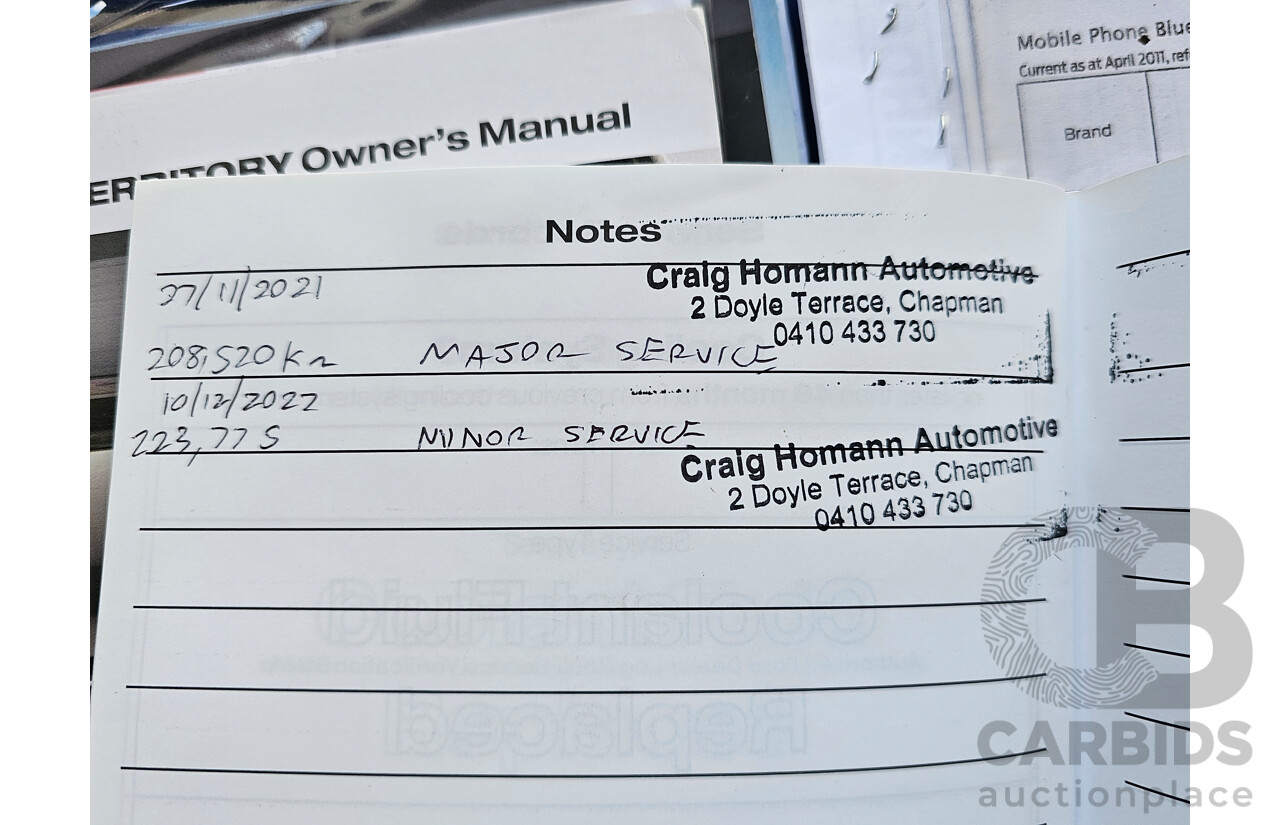 Mobile Phone Blue
Current as at April 2011, ref
Brand
ERRITORY Owner's Manual
Notes
27/11/2021
Craig Homann Automotive
2 Doyle Terrace, Chapman
0410 433 730
208,520 Km MAJOR SERVICE
10/12/2022
223,775 MINOR SERVICE
Craig Homann Automotive
2 Doyle Terrace, Chapman
0410 433 730
Service Types
Coolant Fluid
Replaced
CARBIDS
auctionplace